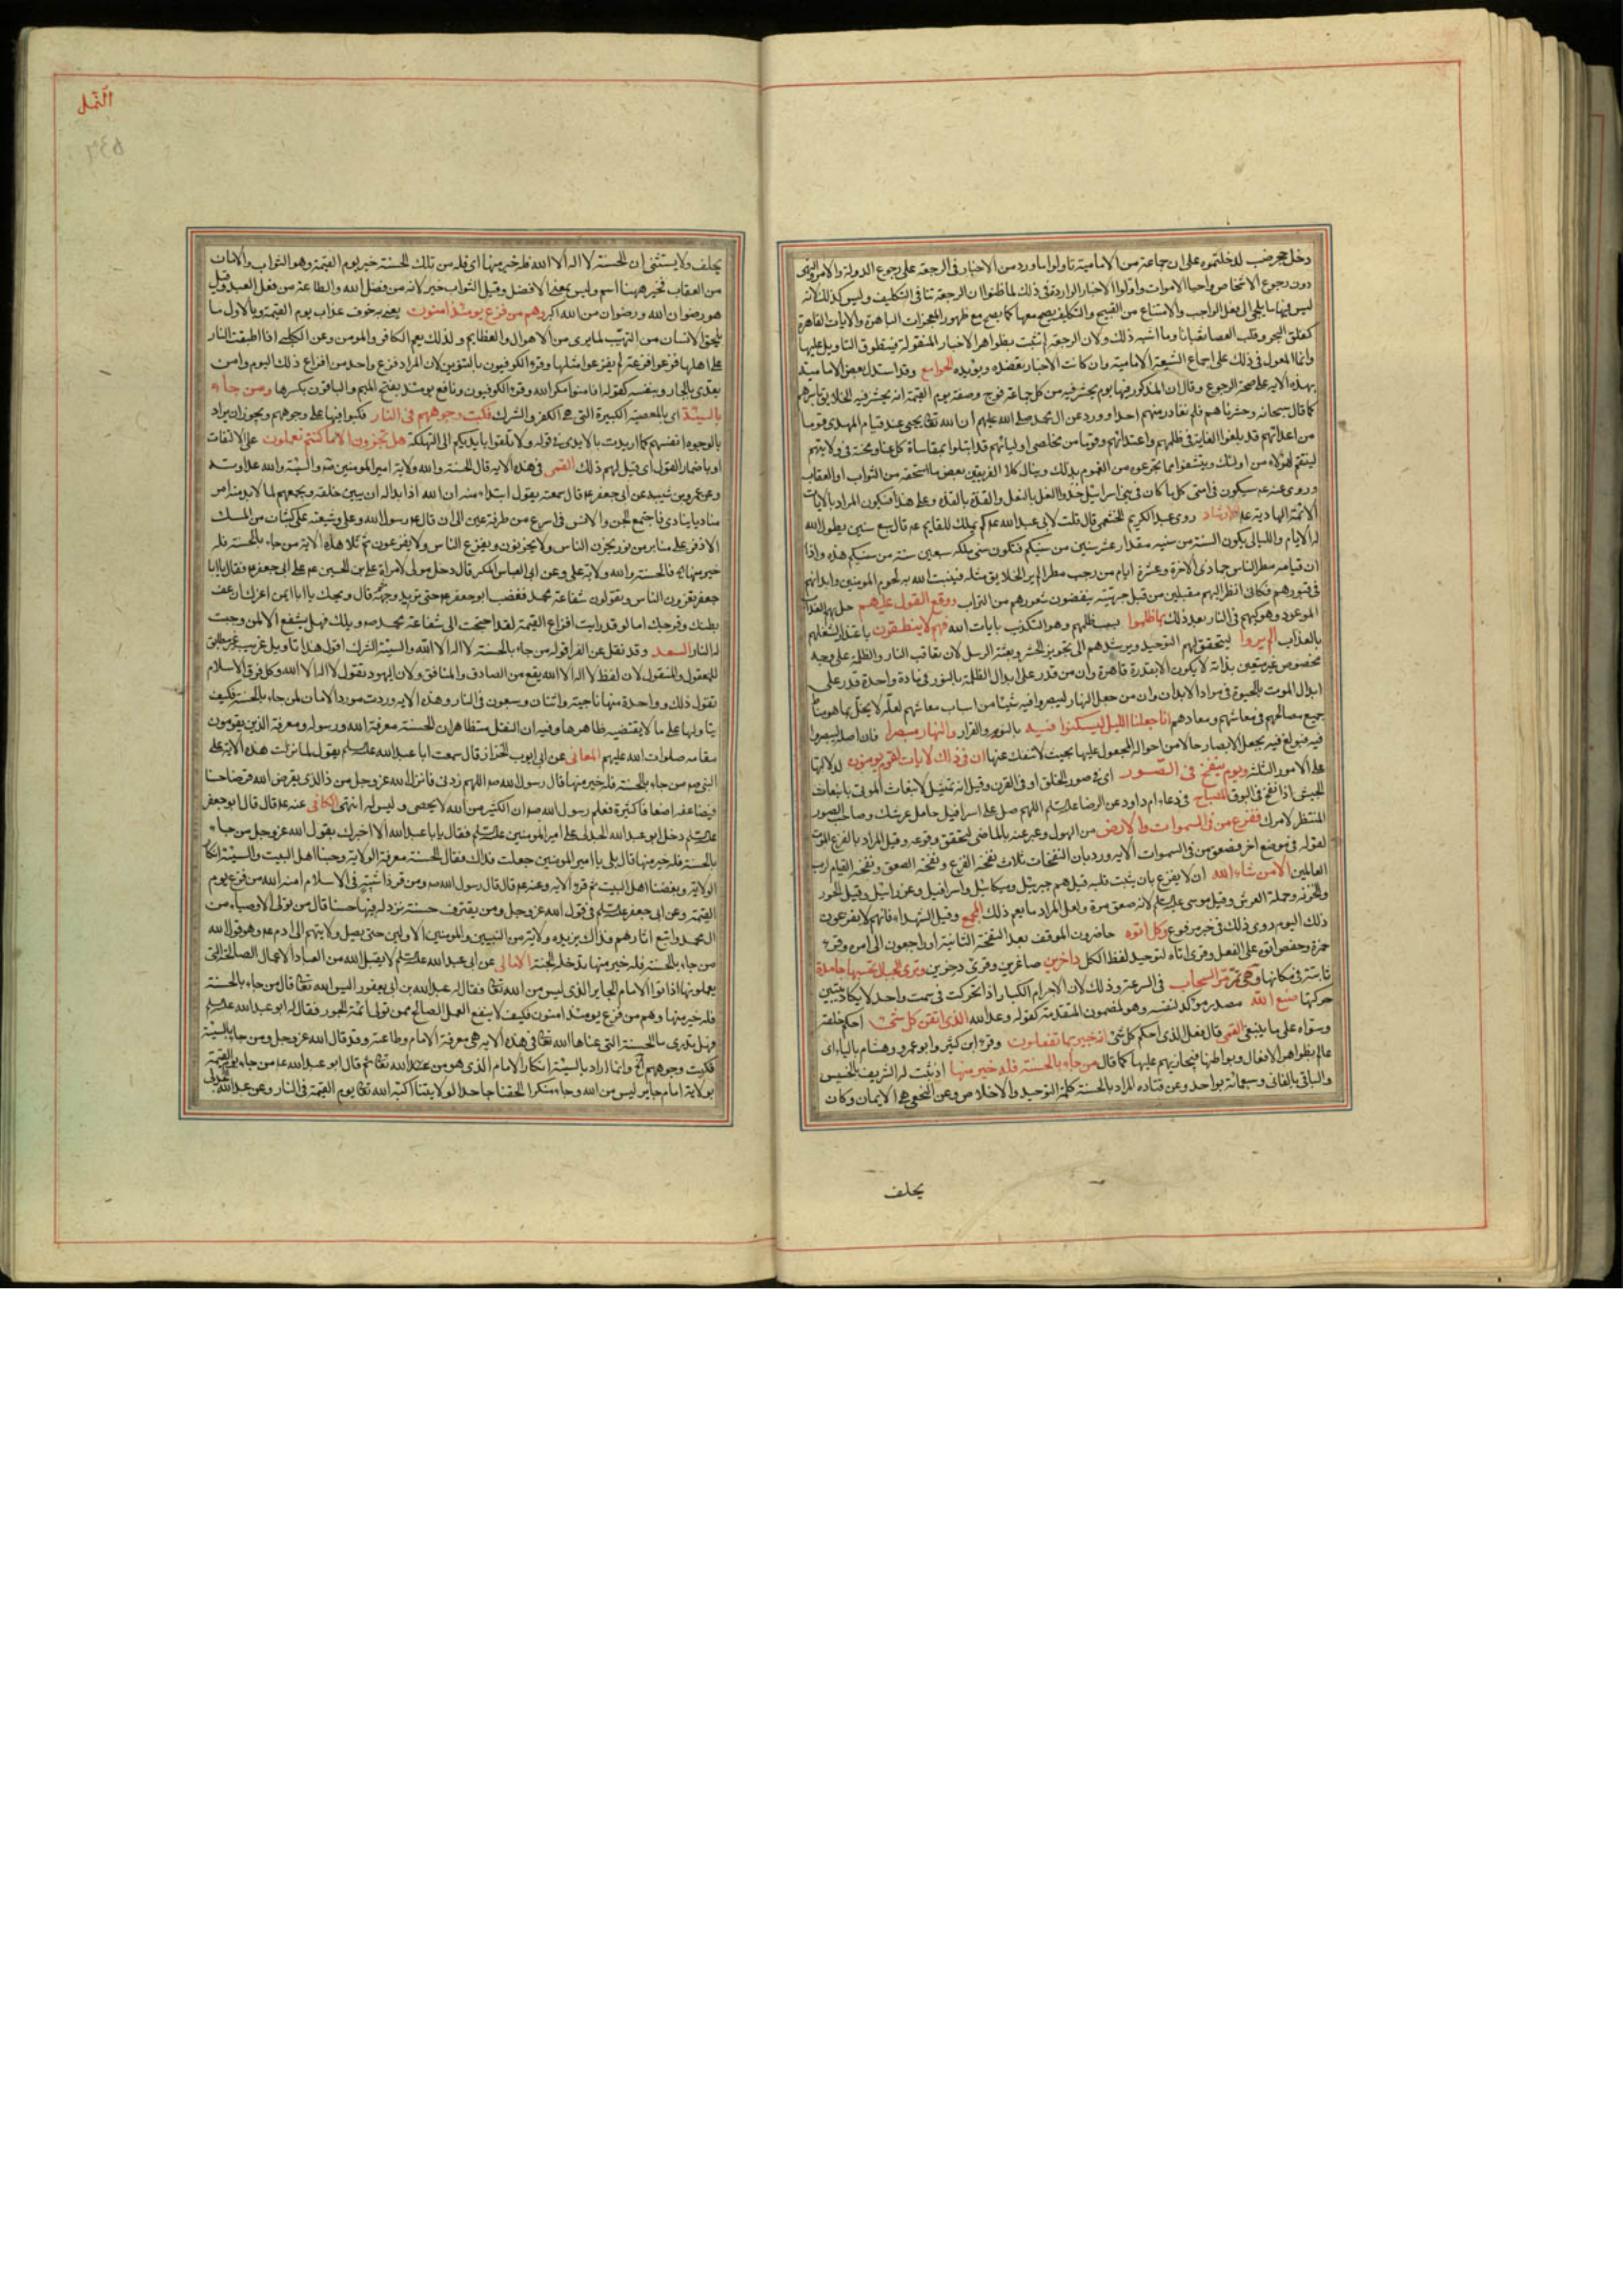 دخل جحر ضب لدخلتموه على ان جماعة من الامامية تاولوا ما ورد من الاخبار فى الرجعة على رجوع الدولة والامر والنهى
دون رجوع الاشخاص واحيا الاموات واولوا الاخبار الواردة فى ذلك لما ظنوا ان الرجعة تنافى التكليف وليس كذلك لانه
ليس فيها ما يلجى الى فعل الواجب والامتناع من القبيح والتكليف يصح معها كما يصح مع ظهور المعجزات الباهرة والايات القاهرة
كفلق البحر وقلب العصا ثعبانا وما اشبه ذلك ولان الرجعة لم تثبت بظواهر الاخبار المنقولة فيتطرق التاويل عليها
وانما المعول فى ذلك على اجماع الشيعة الامامية وان كانت الاخبار تعضده وتويده الجوامع وقد استدل بعض الامامية
بهذه الاية على صحة الرجوع وقال ان المذكور فيها يوم يحشر فيه من كل جماعة فوج وصفة يوم القيمة انه يحشر فيه الخلايق باسرهم
كما قال سبحانه وحشرناهم فلم نغادر منهم احدا وورد عن ال محمد صلى الله عليهم ان الله تعالى يحيى عند قيام المهدى قوما
من اعدائهم قد بلغوا الغاية فى ظلمهم واعتدائهم وقوما من مخلصى اوليائهم قد ابتلوا بمقاساة كل عناء ومحنة فى ولايتهم
لينتقم لهؤلاء من اولئك ويتشفوا مما تجرعوه من الغموم بذلك وينال كلا الفريقين بعض ما استحقه من الثواب او العقاب
وروى عنه عم سيكون فى امتى كل ما كان فى بنى اسرائيل حذو النعل بالنعل والقذة بالقذة وعلى هذا فيكون المراد بالايات
الائمة الهادية عم الارشاد روى عبد الكريم الخثعمى قال قلت لابى عبد الله عم كم يملك القايم عم قال سبع سنين يطول الله
له الايام والليالى يكون السنة من سنيه مقدار عشر سنين من سنيكم فتكون سنى ملكه سبعين سنة من سنيكم هذه واذا
ان قيامه مطر الناس جمادى الاخرة وعشرة ايام من رجب مطرا لم ير الخلايق مثله فينبت الله به لحوم المومنين وابدانهم
فى قبورهم فكانى انظر اليهم مقبلين من قبل جهينة ينفضون شعورهم من التراب ووقع القول عليهم حل بهم العذاب
الموعود وهو كبهم فى النار بعد ذلك بما ظلموا بسبب ظلمهم وهو التكذيب بايات الله فهم لا ينطقون باعتذار لشغلهم
بالعذاب الم يروا ليتحقق لهم التوحيد ويرشدهم الى تجويز الحشر وبعثة الرسل لان تعاقب النار والظلمة على وجه
مخصوص غير متعين بذاته لا يكون الا بقدرة قاهرة وان من قدر على ابدال الظلمة بالنور فى مادة واحدة قدر على
ابدال الموت بالحيوة فى مواد الابدان وان من جعل النهار ليبصروا فيه شيئا من اسباب معاشهم لعله لا يخل بما هو مناط
جميع مصالحهم فى معاشهم ومعادهم انا جعلنا الليل ليسكنوا فيه بالنوم والقرار والنهار مبصرا فان اصله ليبصروا
فيه فبولغ فيه بجعل الابصار حالا من احواله المجعول عليها بحيث لا ينفك عنها ان فى ذلك لايات لقوم يومنون لدلالتها
على الامور الثلثة ويوم ينفخ فى الصور اى فى صور الخلق او فى القرن وقيل انه تمثيل لانبعاث الموتى بانبعاث
الجيش اذا نفخ فى البوق المصباح فى دعاء ام داود عن الرضا عليه السلم اللهم صل على اسرافيل حامل عرشك وصاحب الصور
المنتظر لامرك ففزع من فى السموات والارض من الهول وعبر عنه بالماضى لتحقق وقوعه وقيل المراد بالفزع الموت
لقوله فى موضع اخر فصعق من فى السموات الاية ورد بان النفخات ثلاث نفخة الفزع ونفخة الصعق ونفخة القيام لرب
العالمين الا من شاء الله ان لا يفزع بان يثبت قلبه قيل هم جبرئيل وميكائيل واسرافيل وعزرائيل وقيل الحور
والخزنة وحملة العرش وقيل موسى عليه السلم لانه صعق مرة ولعل المراد ما يعم ذلك المجمع وقيل الشهداء فانهم لا يفزعون
ذلك اليوم روى ذلك فى خبر مرفوع وكل اتوه حاضرون الموقف بعد النفخة الثانية او راجعون الى امره وقرء
حمزة وحفص اتوه على الفعل وقرى اتاه لتوحيد لفظ الكل داخرين صاغرين وقرى دخرين وترى الجبال تحسبها جامدة
ثابتة فى مكانها وهى تمر مر السحاب فى السرعة وذلك لان الاجرام الكبار اذا تحركت فى سمت واحد لا يكاد يتبين
حركتها صنع الله مصدر موكد لنفسه وهو لمضمون المتقدمة كقوله وعد الله الذى اتقن كل شئ احكم خلقه
وسواه على ما ينبغى القمى قال فعل الذى احكم كل شئ انه خبير بما تفعلون وقرء ابن كثير وابو عمرو وهشام بالياء اى
عالم بظواهر الافعال وبواطنها فيجازيهم عليها كما قال من جاء بالحسنة فله خير منها اذ ثبت له الشريف بالخسيس
والباقى بالفانى وسبعمائة بواحد وعن قتادة المراد بالحسنة كلمة التوحيد والاخلاص وعن النخعى هى الايمان وكان
يحلف
النمل
٢٤٥
يحلف ولا يستثنى ان الحسنة لا اله الا الله فله خير منها اى فله من تلك الحسنة خير يوم القيمة وهو الثواب والامان
من العقاب فخير ههنا اسم وليس بمعنى الافضل وقيل الثواب خير لانه من فضل الله والطاعة من فعل العبد وقيل
هو رضوان الله ورضوان من الله اكبر وهم من فزع يومئذ امنون يعنى به خوف عذاب يوم القيمة وبالاول ما
يلحق الانسان من التهيب لما يرى من الاهوال والعظايم ولذلك يعم الكافر والمومن وعن الكلبى اذا اطبقت النار
على اهلها فزعوا فزعة لم يفزعوا مثلها وقرء الكوفيون بالتنوين لان المراد فزع واحد من افزاع ذلك اليوم وامن
يعدى بالجار وبنفسه كقوله افامنوا مكر الله وقرء الكوفيون ونافع يومئذ بفتح الميم والباقون بكسرها ومن جاء
بالسيئة اى بالمعصية الكبيرة التى هى الكفر والشرك فكبت وجوههم فى النار فكبوا فيها على وجوههم ويجوز ان يراد
بالوجوه انفسهم كما اريدت بالايدى فى قوله ولا تلقوا بايديكم الى التهلكة هل تجزون الا ما كنتم تعملون على الالتفات
او باضمار القول اى قيل لهم ذلك القمى فى هذه الاية قال الحسنة والله ولاية امير المومنين عم والسيئة والله عداوته
وعن عمرو بن شيبة عن ابى جعفر عم قال سمعته يقول ابتداء منه ان الله اذا بدا له ان يبين خلقه ويجمعهم لما لابد منه امر
مناديا ينادى فاجتمع الجن والانس فى اسرع من طرفة عين الى ان قال عم رسول الله وعلى وشيعته على كثبان من المسك
الاذفر على منابر من نور يحزن الناس ولا يحزنون ويفزع الناس ولا يفزعون ثم تلا هذه الاية من جاء بالحسنة فله
خير منها الخ فالحسنة والله ولاية على وعن ابى العباس المكبر قال دخل مولى لامراة على بن الحسين عم على ابى جعفر عم فقال يا با
جعفر تغرون الناس وتقولون شفاعة محمد فغضب ابو جعفر عم حتى تربد وجهه ثم قال ويحك يا ابا ايمن اغرك ان عف
بطنك وفرجك اما لو قد رايت افزاع القيمة لقد احتجت الى شفاعة محمد صم ويلك فهل يشفع الا لمن وجبت
له النار السعد وقد نقل عن الفرا قوله من جاء بالحسنة لا اله الا الله والسيئة الشرك اقول هذا تاويل غريب غير مطابق
للمعقول والمنقول لان لفظ لا اله الا الله يقع من الصادق والمنافق ولان اليهود تقول لا اله الا الله وكل فرق الاسلام
تقول ذلك وواحدة منها ناجية واثنتان وسبعون فى النار وهذه الاية وردت مورد الامان لمن جاء بالحسنة فكيف
يتاولها على ما لا يقتضيه ظاهرها وفيه ان النقل متظاهر ان الحسنة معرفة الله ورسوله ومعرفة الذين يقومون
مقامه صلوات الله عليهم المعانى عن ابى ايوب الخزاز قال سمعت ابا عبد الله عليه السلم يقول لما نزلت هذه الاية على
النبى صم من جاء بالحسنة فله خير منها قال رسول الله صم اللهم زدنى فانزل الله عز وجل من ذا الذى يقرض الله قرضا حسنا
فيضاعفه اضعافا كثيرة فعلم رسول الله صم ان الكثير من الله لا يحصى وليس له انتهى الكافى عنه عم قال قال ابو جعفر
عليه السلم دخل ابو عبد الله الجدلى على امير المومنين عليه السلم فقال يا با عبد الله الا اخبرك بقول الله عز وجل من جاء
بالحسنة فله خير منها قال بلى يا امير المومنين جعلت فداك فقال الحسنة معرفة الولاية وحبنا اهل البيت والسيئة انكار
الولاية وبغضنا اهل البيت ثم قرء الاية وعنه عم قال قال رسول الله صم ومن قر ذا شيبة فى الاسلام امنه الله من فزع يوم
القيمة وعن ابى جعفر عليه السلم فى قول الله عز وجل ومن يقترف حسنة نزد له فيها حسنا قال من تولى الاوصياء من
ال محمد واتبع اثارهم فذاك يزيده ولاية من النبيين والمومنين الاولين حتى يصل ولايتهم الى ادم عم وهو قول الله
من جاء بالحسنة فله خير منها يدخله الجنة الامالى عن ابى عبد الله عليه السلم لا يقبل الله من العباد الاعمال الصالحة التى
يعملونها اذا تولوا الامام الجاير الذى ليس من الله تعالى فقال له عبد الله بن ابى يعفور اليس الله تعالى قال من جاء بالحسنة
فله خير منها وهم من فزع يومئذ امنون فكيف لا ينفع العمل الصالح ممن تولى ائمة الجور فقال له ابو عبد الله عليه السلم
وهل تدرى ما الحسنة التى عناها الله تعالى فى هذه الاية هى معرفة الامام وطاعته وقد قال الله عز وجل ومن جاء بالسيئة
فكبت وجوههم الخ وانما اراد بالسيئة انكار الامام الذى هو من عند الله تعالى ثم قال ابو عبد الله عم من جاء يوم القيمة
بولاية امام جاير ليس من الله وجاء منكرا لحقنا جاحدا لولايتنا اكبه الله تعالى يوم القيمة فى النار وعن عبد الله